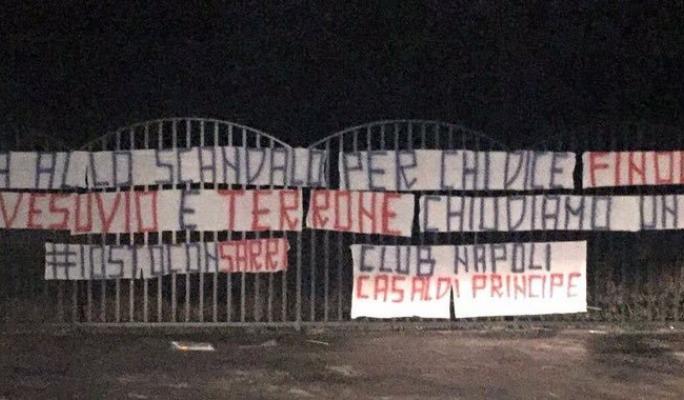 A ALLO SCANDALO PER CHI DICE FINO
VESUVIO E TERRONE CHIUDIAMO UN
#IOSTOCONSARRI
CLUB NAPOLI
CASALDI PRINCIPE